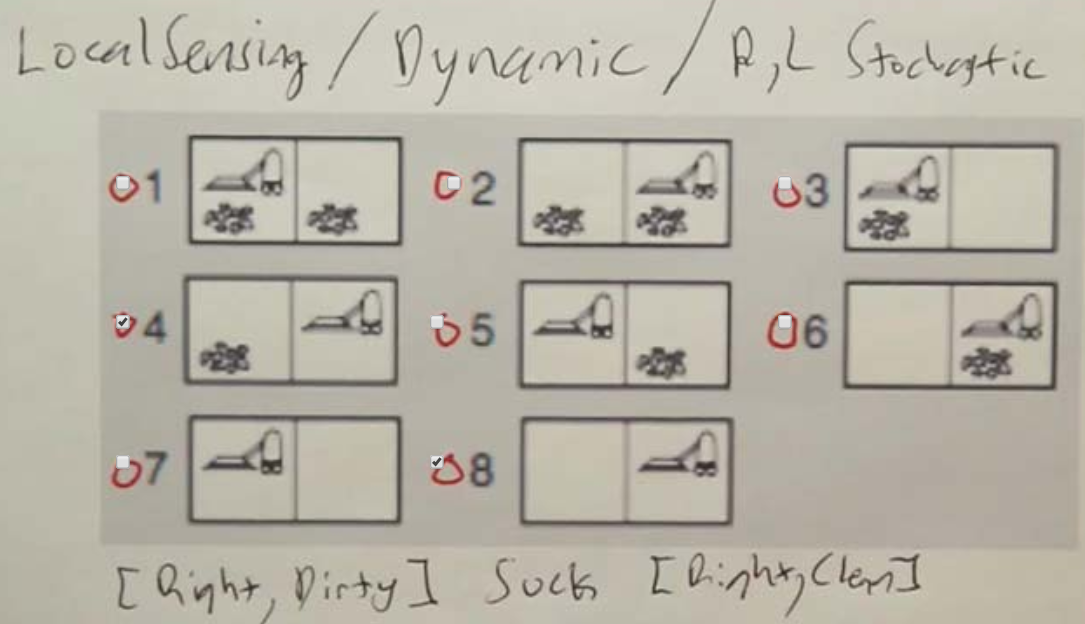 Local Sensing / Dynamic / R, L Stochastic
1 2 3
4 5 6
7 8
[Right, Dirty] Suck [Right, Clean]